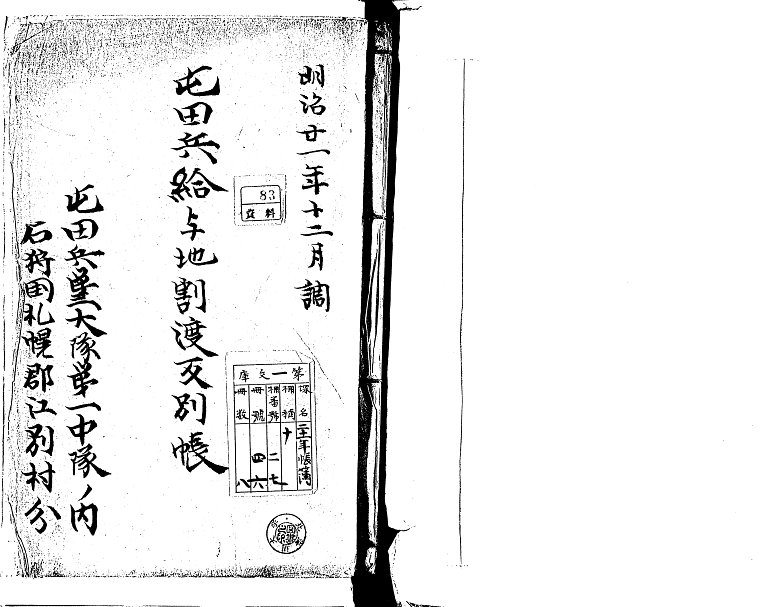 明治廿一年十二月調
屯田兵給与地割渡反別帳
屯田兵第一大隊第一中隊ノ内
石狩国札幌郡江別村分
83
資料
第一文庫
塚名 二十一年帳簿
棚 十
棚番号 二七
冊號 四六
冊数 八